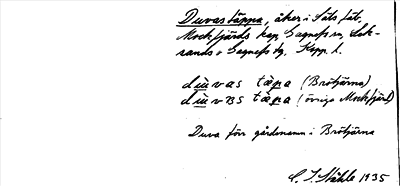 Duvastäppa, åker i Såts fåb.
Mockfjärds kap. Gagnefs sn, Lek-
sands o Gagnefs tg. Kopp. l.
duvas täpa (Brötjärna)
duvɐs täpa (övriga Mockfjärd)
Duva förr gårdsnamn i Brötjärna
C. I. Ståhle 1935